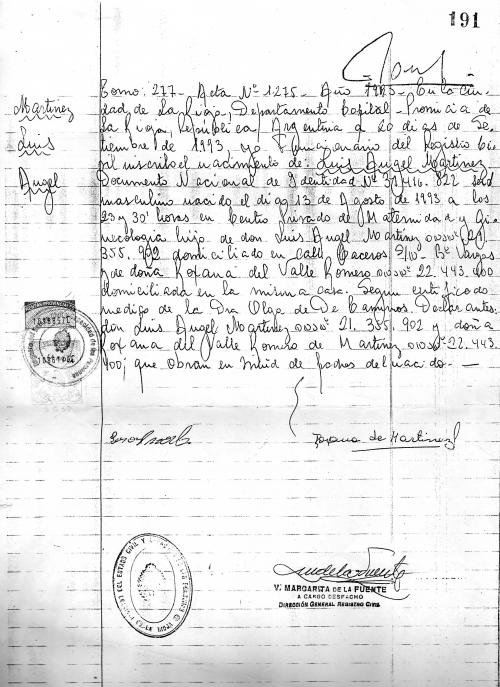 191
Tomo: 277 - Acta Nº 1275 - Año 1993 - En la Ciu
Martinez
dad de La Rioja, Departamento Capital - Provincia de
La Rioja, República Argentina a 20 dias de Se
Luis
tiembre de 1993, yo Funcionario del Registro Ci
vil inscribo el nacimiento de: Luis Angel Martinez
Angel
Documento Nacional de Identidad Nº 822 sexo
masculino nacido el dia 13 de Agosto de 1993 a los
23 y 30' horas en Centro Privado de Maternidad y Gi
necologia hijo de don Luis Angel Martinez
355. 902 domiciliado en calle Caceros S/Nº - Bº Vargas
y de doña Roxana del Valle Romero 22.443.400
domiciliada en la misma casa. Segun certificado
medico de la Dra Olga de De Caminos. Declarantes:
don Luis Angel Martinez 21. 355. 902 y doña
Roxana del Valle Romero de Martinez 22.443.
400; que obran en virtud de padres del nacido. —
Roxana de Martinez
V. MARGARITA DE LA FUENTE
A CARGO DESPACHO
DIRECCIÓN GENERAL REGISTRO CIVIL